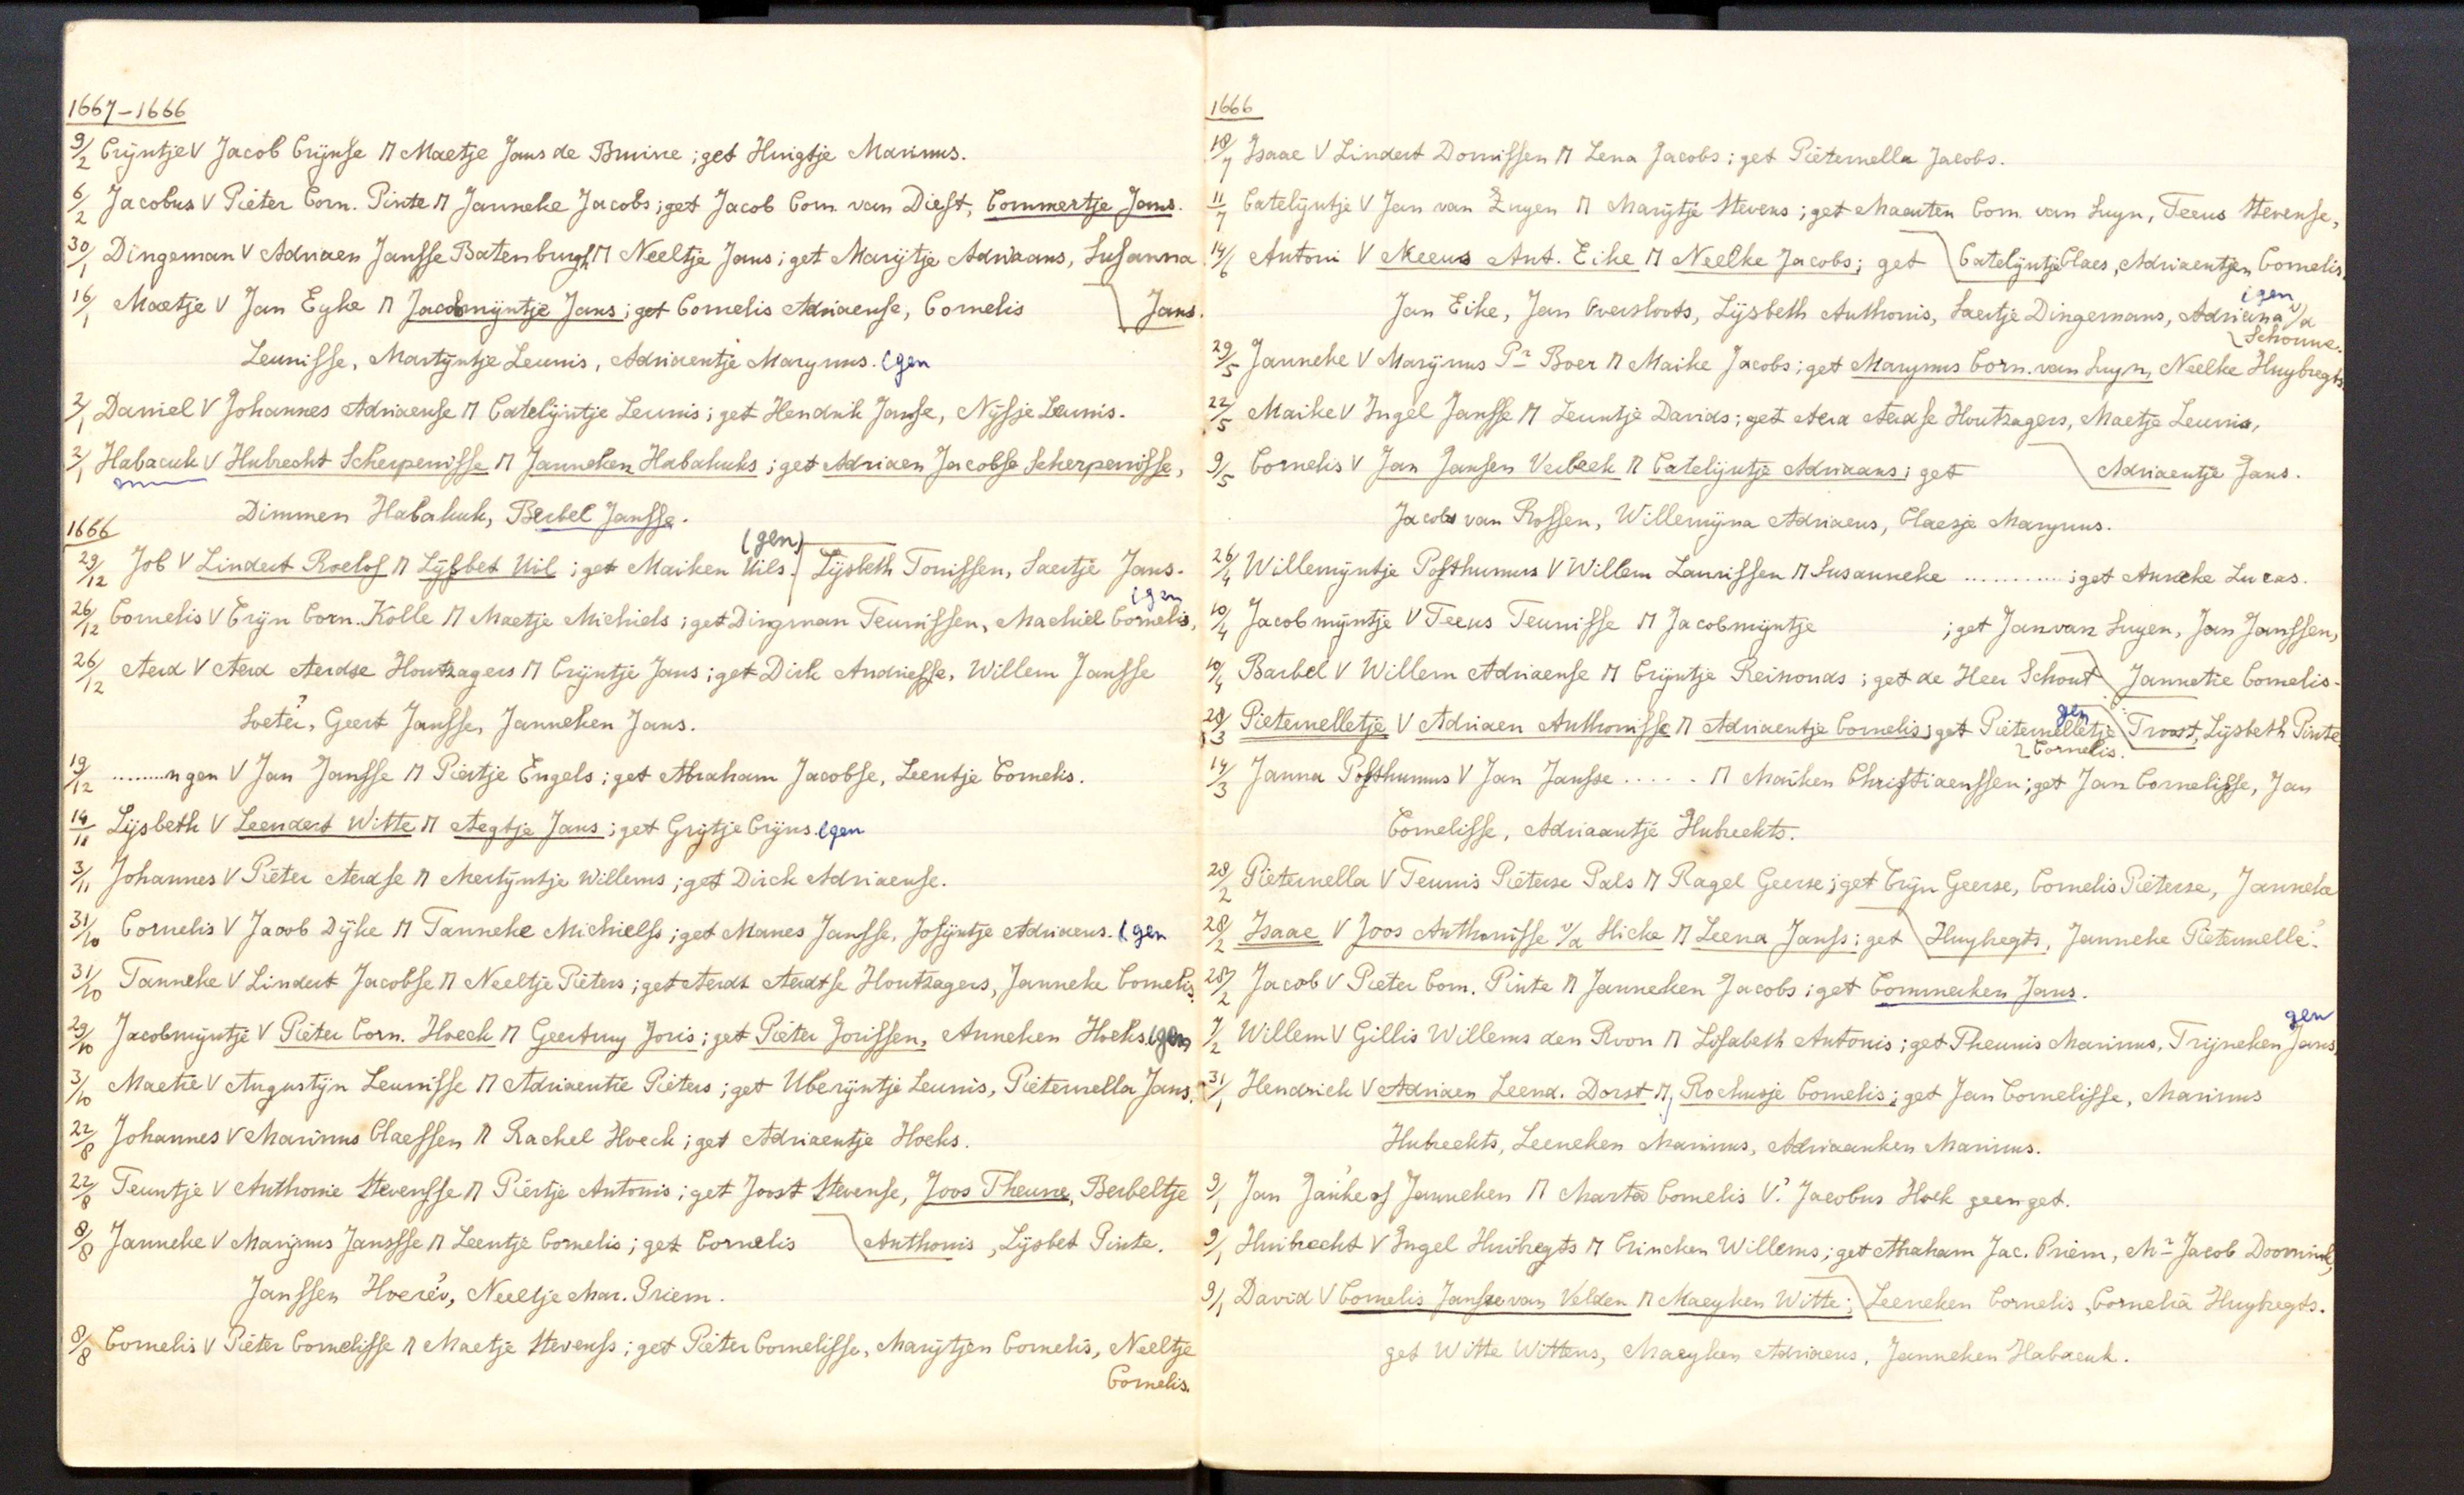 1667-1666
9/2 Crijntje V Jacob Crijnse M Maetje Jans de Bruine; get Huigtje Marinus.
6/2 Jacobus V Pieter Corn. Pinte M Janneke Jacobs; get Jacob Corn. van Diest, Commertje Jans.
30/1 Dingeman V Adriaen Jansse Batenburgh M Neeltje Jans; get Marijtje Adriaans, Susanna
16/1 Maetje V Jan Eyke M Jacobmijntje Jans; get Cornelis Adriaense, Cornelis \ Jans.
Leunisse, Martijntje Leunis, Adriaentje Marynus. (gen
2/1 Daniel V Johannes Adriaense M Catelijntje Leunis; get Hendrik Janse, Nijsje Leunis.
2/1 Habacuk V Hubrecht Scherpenisse M Janneken Habakuks; get Adriaen Jacobse Scherpenisse,
Dimmen Habakuk, Berbel Jansse.
1666
29/12 Job V Lindert Roelof M Lijsbet Uil; get Maiken Uils. (gen) Lijsbeth Tonissen, Saertje Jans.
26/12 Cornelis V Crijn Corn. Kolle M Maetje Michiels; get Dingman Teunissen, Machiel Cornelis, (gen
26/12 Aerd V Aerd Aerdse Houtzagers M Crijntje Jans; get Dirk Andriesse, Willem Jansse
Soeter?, Geert Jansse, Janneken Jans.
19/12 .........ngen V Jan Jansse M Piertje Engels; get Abraham Jacobse, Leentje Cornelis.
14/11 Lijsbeth V Leendert Witte M Aegtje Jans; get Grijtje Crijns. (gen
3/11 Johannes V Pieter Aerdse M Mertijntje Willems; get Dirck Adriaense.
31/10 Cornelis V Jacob Dijke M Tanneke Michielss; get Manes Jansse, Josijntje Adriaens. (gen
31/10 Tanneke V Lindert Jacobse M Neeltje Pieters; get Aerdt Aerdtse Houtzagers, Janneke Cornelis.
29/10 Jacobmijntje V Pieter Corn. Hoeck M Geertruy Joris; get Pieter Jorissen, Anneken Hoeks. (gen
3/10 Maetie V Augustijn Leunisse M Adriaentie Pieters; get Uberijntje Leunis, Pieternella Jans.
22/8 Johannes V Marinus Claessen M Rachel Hoeck; get Adriaentje Hoeks.
22/8 Teuntje V Anthonie Stevensse M Piertje Antonis; get Joost Stevense, Joos Theune, Berbeltje
8/8 Janneke V Marijnus Janssse M Leentje Cornelis; get Cornelis \ Anthonis, Lijsbet Pinte.
Janssen Hoerév?, Neeltje Mar. Priem.
8/8 Cornelis V Pieter Cornelisse M Maetje Stevenss; get Pieter Cornelisse, Marijtjen Cornelis, Neeltje
Cornelis.
1666
18/7 Isaac V Lindert Domissen M Lena Jacobs; get Pieternella Jacobs.
11/7 Catelijntje V Jan van Zuyen M Marijtje Stevens; get Maerten Corn. van Suyn, Teeus Stevense,
14/6 Antoni V Meeus Ant. Eike M Neelke Jacobs; get \ Catelijntje Claes, Adriaentjen Cornelis.
Jan Eike, Jan Oversloots, Lijsbeth Anthonis, Saertje Dingemans, Adriana v/d (gen
Schonne.
29/5 Janneke V Marijnus Pr Boer M Maike Jacobs; get Marynus Corn. van Suyn, Neelke Huybregts
22/5 Maike V Ingel Jansse M Leuntje Davids; get Aerd Aerdse Houtzagers, Maetje Leunis,
9/5 Cornelis V Jan Jansen Verbeek M Catelijntje Adriaans; get \ Adriaentje Jans.
Jacob van Rossen, Willemijna Adriaens, Claesje Marynus.
26/4 Willemijntje Posthumus V Willem Laurissen M Susanneke ............; get Anneke Lucas.
10/4 Jacobmijntje V Teeus Teunisse M Jacobmijntje ; get Jan van Suyen, Jan Janssen,
10/4 Barbel V Willem Adriaense M Crijntje Reinonds; get de Heer Schout \ Jannetie Cornelis.
28/3 Pieternelletje V Adriaen Anthonisse M Adriaentje Cornelis; get Pieternelletje gen \ Troost, Lijsbeth Pinte.
Cornelis.
14/3 Janna Posthumus V Jan Jansse ..... M Maiken Christiaenssen; get Jan Cornelisse, Jan
Cornelisse, Adriaantje Hubrechts.
28/2 Pieternella V Teunis Pieterse Pals M Ragel Geerse; get Crijn Geerse, Cornelis Pieterse, Janneke
28/2 Isaac V Joos Anthonisse v/d Slicke M Leena Janss; get \ Huybregts, Janneke Pieternelle?.
28/2 Jacob V Pieter Corn. Pinte M Janneken Jacobs; get Commerken Jans.
7/2 Willem V Gillis Willems den Roon M Lisabeth Antonis; get Theunis Marinus, Trijneken Jans, gen
31/1 Hendrick V Adriaen Leend. Dorst M Rochusje Cornelis; get Jan Cornelisse, Marinus
Hubrechts, Leeneken Marinus, Adriaanken Marinus.
9/1 Jan Janke of Janneken M Marta Cornelis V? Jacobus Hoek geen get.
9/1 Huibrecht V Ingel Huibregts M Crincken Willems; get Abraham Jac. Priem, Mr Jacob Doornink,
9/1 David V Cornelis Jansse van Velden M Maeyken Witte; \ Leeneken Cornelis, Cornelia Huybregts.
get Witte Wittens, Maeyken Adriaens, Janneken Habacuk.